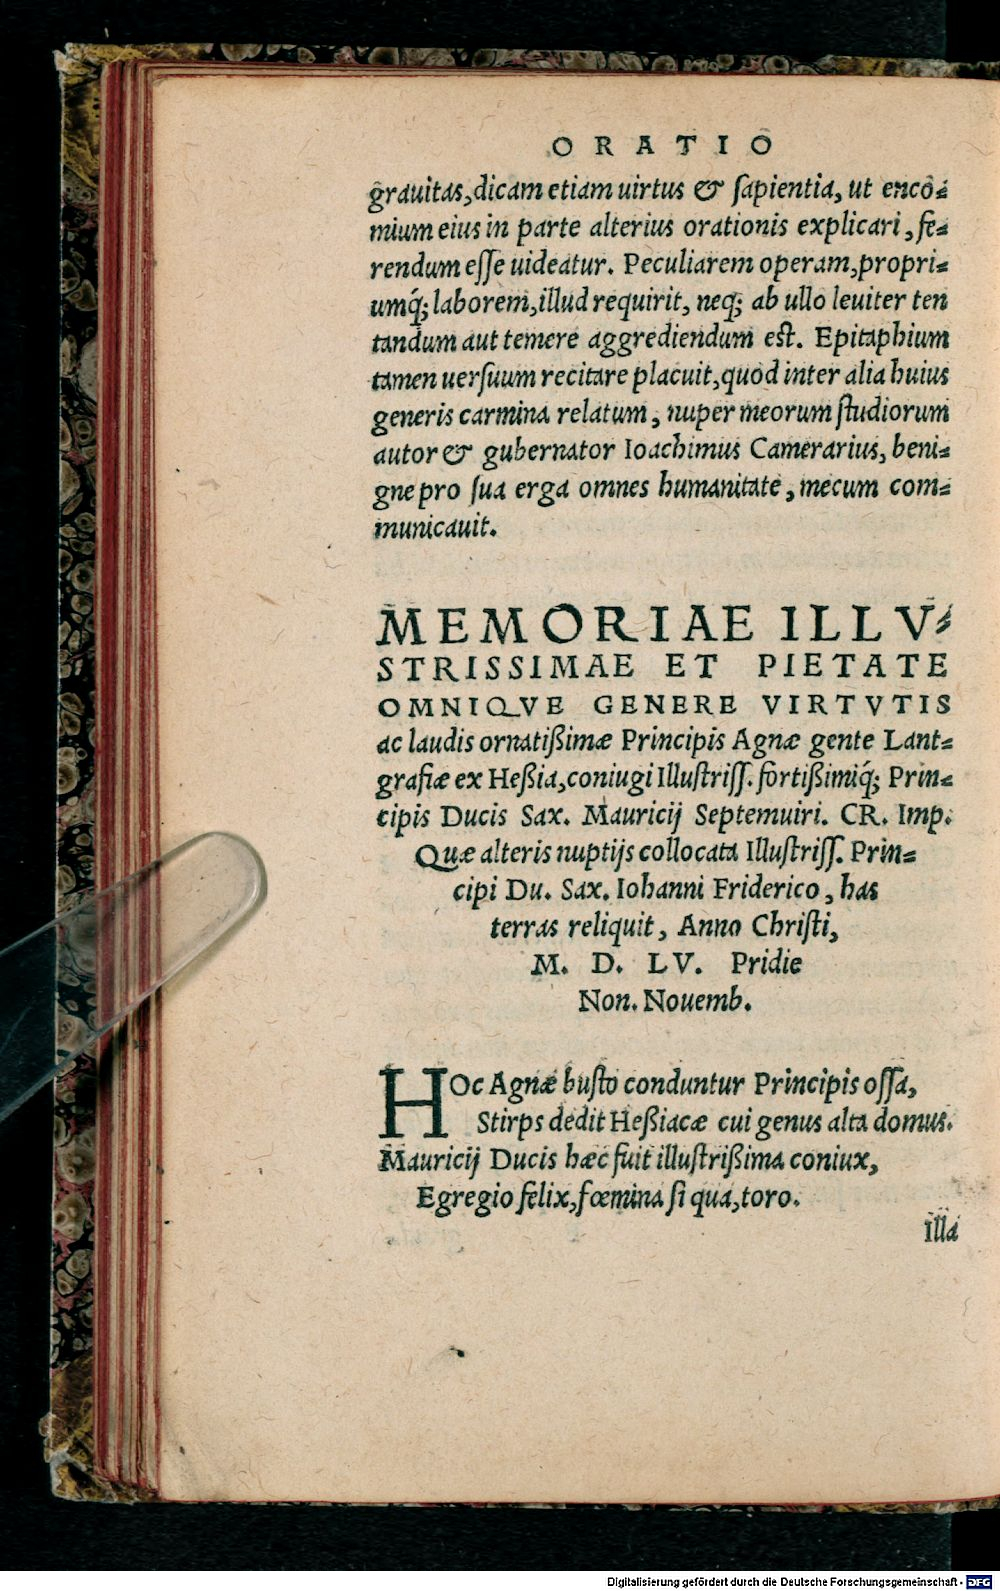 ORATIO
grauitas, dicam etiam uirtus & ſapientia, ut enco⸗
mium eius in parte alterius orationis explicari, fe⸗
rendum eſſe uideatur. Peculiarem operam, propri⸗
umq́; laborem, illud requirit, neq; ab ullo leuiter ten
tandum aut temere aggrediendum est. Epitaphium
tamen uerſuum recitare placuit, quod inter alia huius
generis carmina relatum, nuper meorum ſtudiorum
autor & gubernator Ioachimus Camerarius, beni⸗
gne pro ſua erga omnes humanitate, mecum com⸗
municauit.
MEMORIAE ILLV⸗
STRISSIMAE ET PIETATE
OMNIQVE GENERE VIRTVTIS
ac laudis ornatißimæ Principis Agnæ gente Lant⸗
grafiæ ex Heßia, coniugi Illuſtriſſ. fortißimiq́; Prin⸗
cipis Ducis Sax. Mauricij Septemuiri. CR. Imp.
Quæ alteris nuptijs collocata Illuſtriſſ. Prin⸗
cipi Du. Sax. Iohanni Friderico, has
terras reliquit, Anno Chriſti,
M. D. LV. Pridie
Non. Nouemb.
HOc Agnæ buſto conduntur Principis oſſa,
Stirps dedit Heßiacæ cui genus alta domus.
Mauricij Ducis hæc fuit illuſtrißima coniux,
Egregio felix, fœmina ſi qua, toro.
Illa
Digitalisierung gefördert durch die Deutsche Forschungsgemeinschaft - DFG